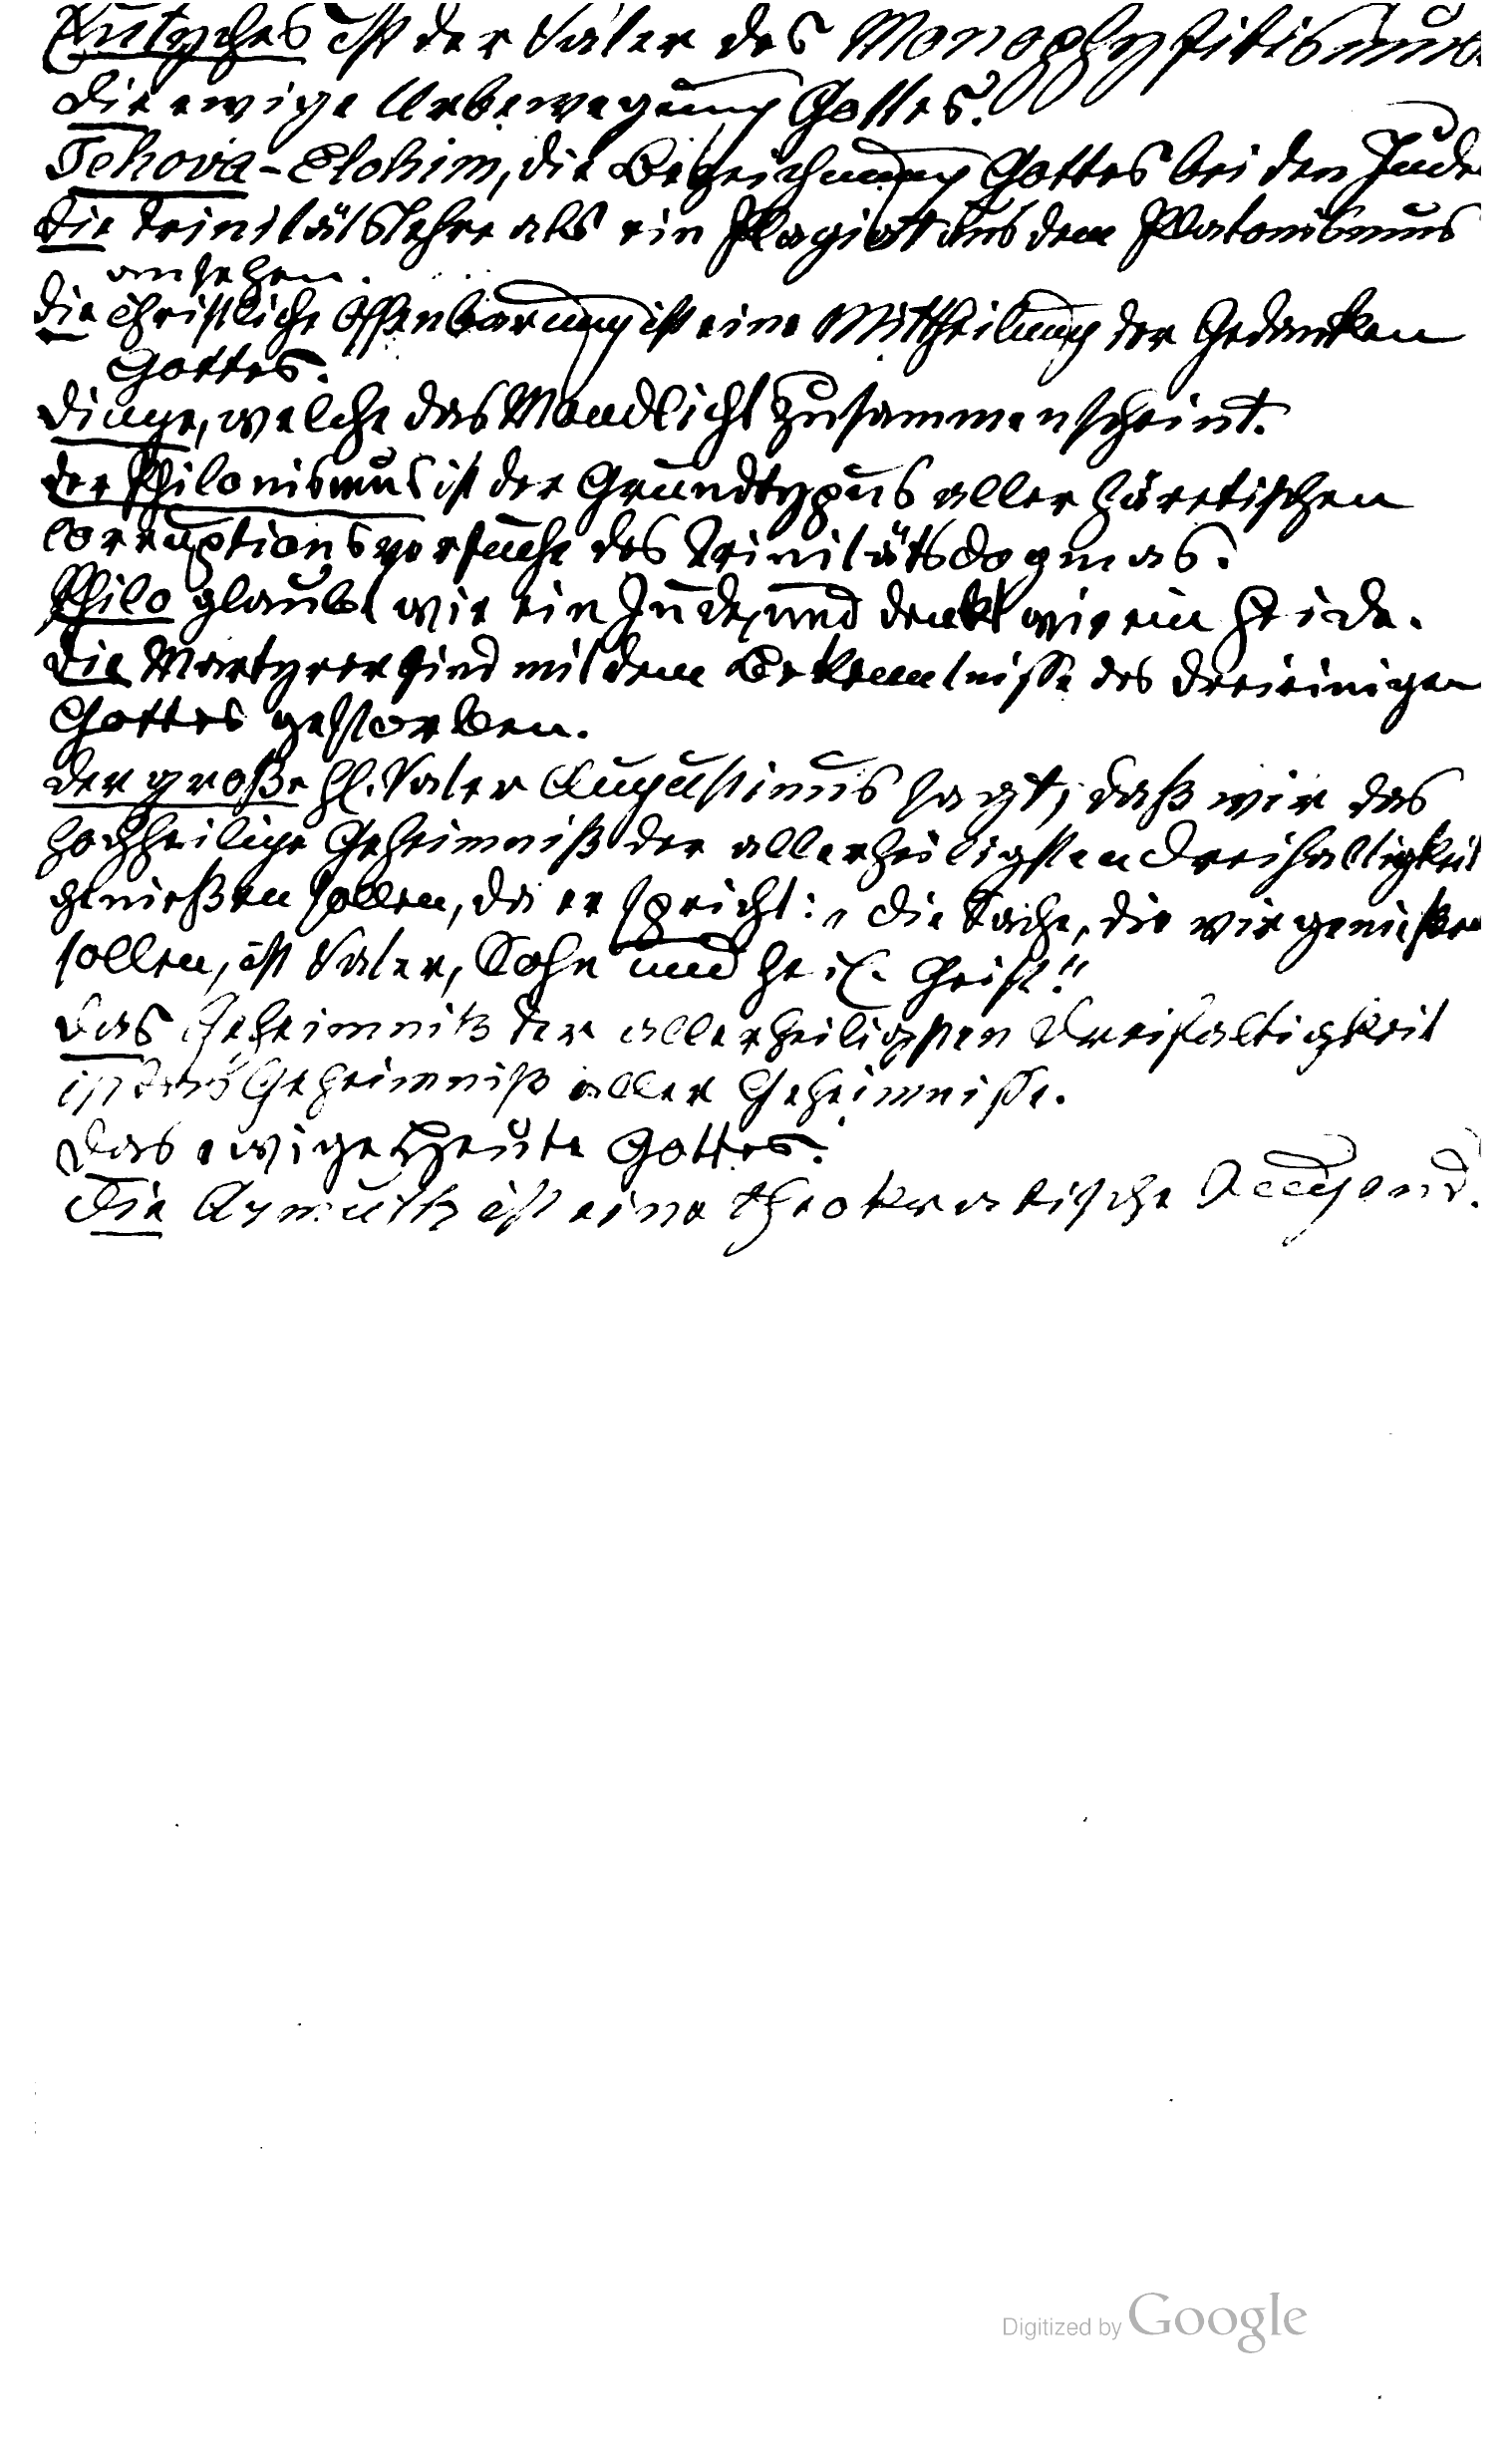 Eutyches ist der Vater des Monophysitismus.
Die ewige Urbewegung Gottes.
Jehova-Elohim, die Bezeichnung Gottes bei den Jude
Die Trinitätslehre als ein Plagiat aus dem Platonismus
ansehen.
Die christliche Offenbarung ist eine Mittheilung der Gedanken
Gottes.
Dinge, welche das Mondlicht zusammenscheint.
Der Philonismus ist der Grundtypus aller häretischen
Corruptionsversuche des Trinitätsdogmas.
Philo glaubt wie ein Jude, und denkt wie ein Heide.
Die Martyrer sind mit dem Bekenntnisse des dreieinigen
Gottes gestorben.
Der große hl. Vater Augustinus sagt, daß wir das
hochheilige Geheimniß der allerheiligsten Dreifaltigkeit
genießen sollen, da er spricht: „Die Sache, die wir genießen
sollen, ist Vater, Sohn und heil. Geist."
Das Geheimniß der allerheiligsten Dreifaltigkeit
ist das Geheimniß aller Geheimnisse.
Das ewige Heute Gottes.
Die Armuth ist eine theokratische
Digitized by Google